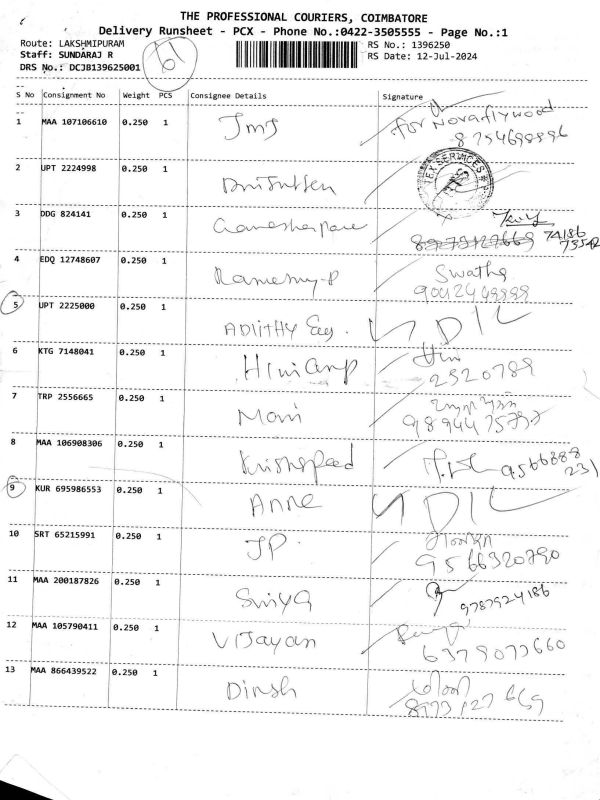 THE PROFESSIONAL COURIERS, COIMBATORE
Delivery Runsheet - PCX - Phone No.:0422-3505555 - Page No.:1
Route: LAKSHMIPURAM RS No.: 1396250
Staff: SUNDARAJ R RS Date: 12-Jul-2024
DRS No.: DCJB139625001
S No Consignment No Weight PCS Consignee Details Signature
1 MAA 107106610 0.250 1 JmJ for Novaflywood
8754698896
2 UPT 2224998 0.250 1
TEX SERVICES
3 DDG 824141 0.250 1
8973127669 74186
4 EDQ 12748607 0.250 1 Ramesny.P Swathe
5 UPT 2225000 0.250 1 ADIITHY Eeg. NDIL
6 KTG 7148041 0.250 1 Hini Amp Hini
2520789
7 TRP 2556665 0.250 1 Mani
8 MAA 106908306 0.250 1 Krishspeed 9566888
231
9 KUR 695986553 0.250 1 Anne NDIL
10 SRT 65215991 0.250 1 JP
9566320790
11 MAA 200187826 0.250 1 Suiya
9787924186
12 MAA 105790411 0.250 1 Vijayan
6379073660
13 MAA 866439522 0.250 1 Dinsh
8973127669